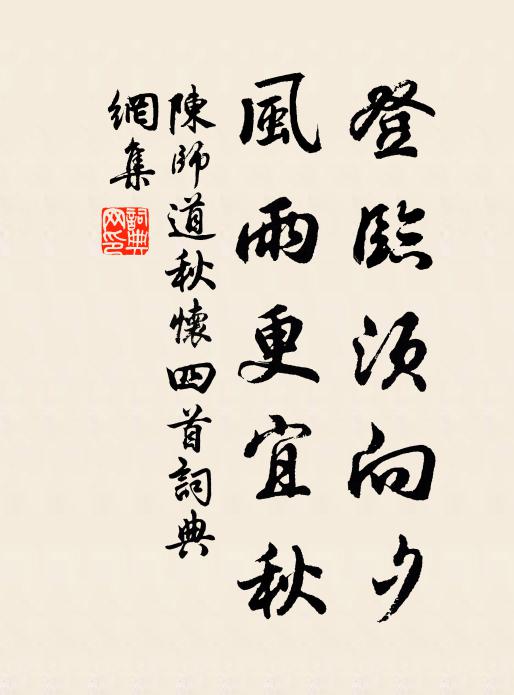 登臨須向夕
風雨更宜秋
陳師道秋懷四首詞典
網集
詞典
网印